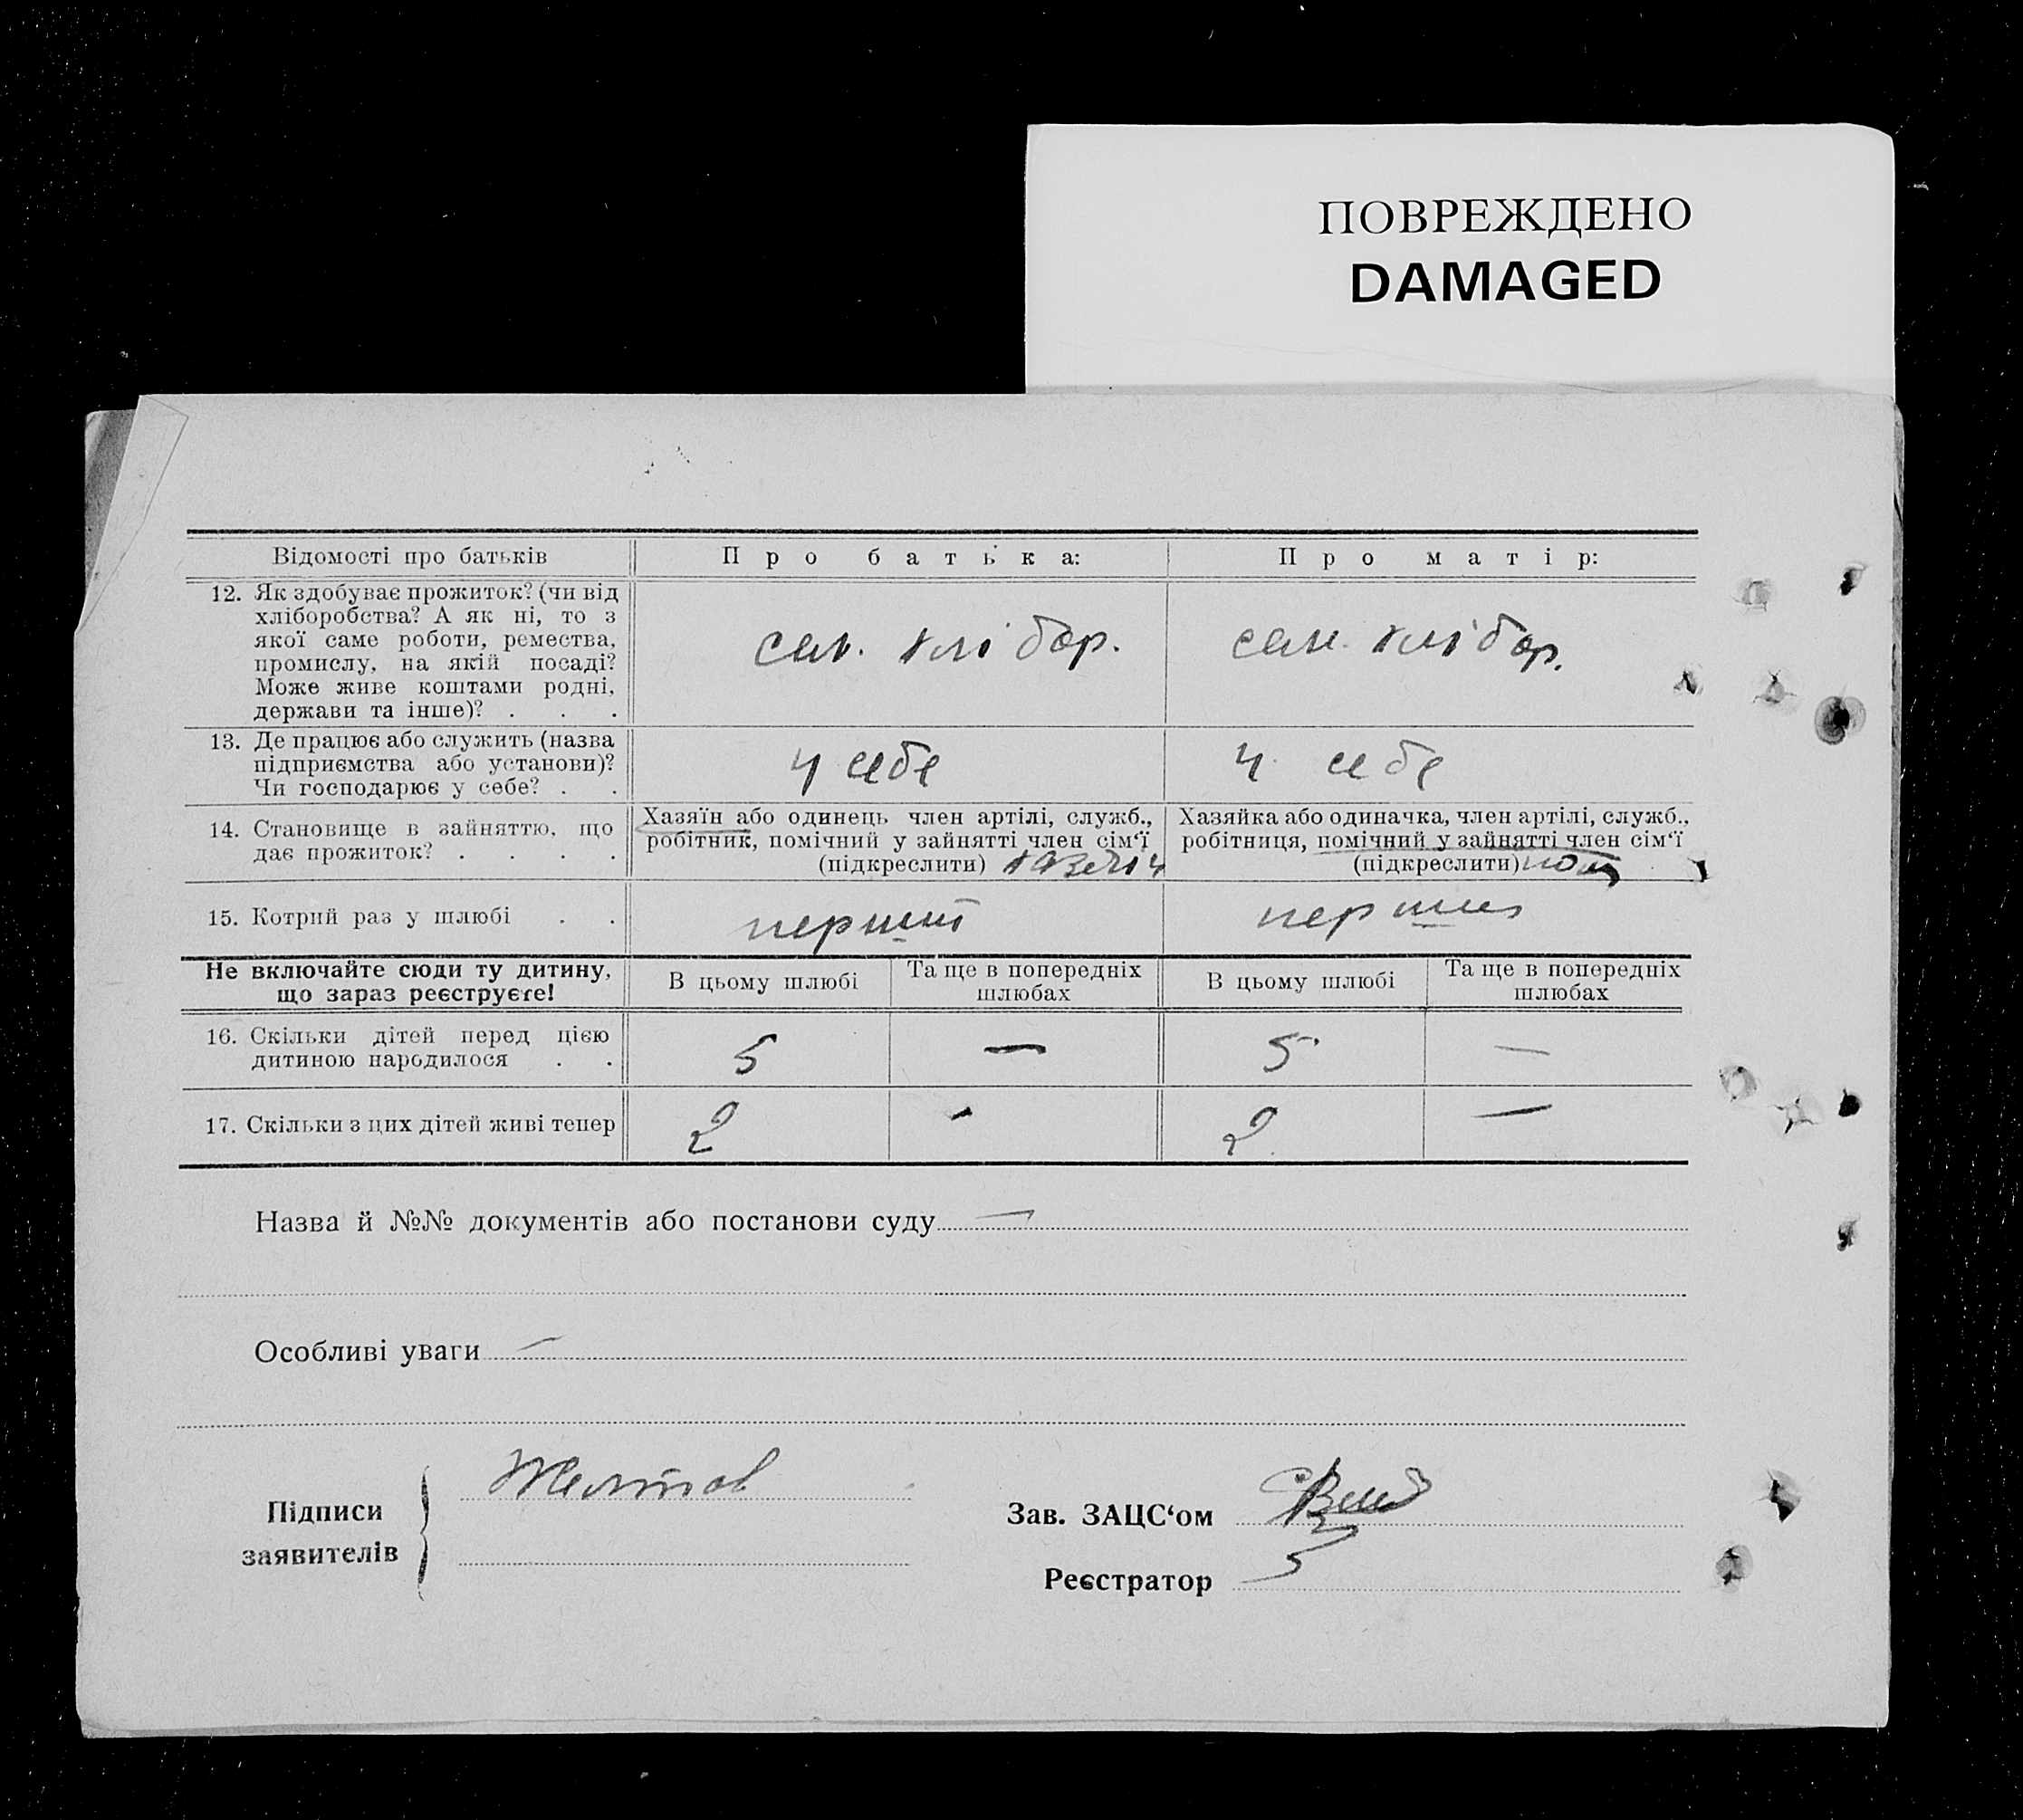 ПОВРЕЖДЕНО
DAMAGED
Відомості про батьків
Про батька:
Про матір:
12. Як здобуває прожиток? (чи від
хліборобства? А як ні, то з
якої саме роботи, ремества,
промислу, на якій посаді?
Може живе коштами родні,
держави та інше)? . . .
сел. хлібор.
селя. хлібор.
13. Де працює або служить (назва
підприємства або установи)?
Чи господарює у себе? . .
у себе
у себе
14. Становище в зайняттю, що
дає прожиток? . . . .
Хазяїн або одинець член артілі, служб.,
робітник, помічний у зайнятті член сім‘ї
(підкреслити)
Хазяйка або одиначка, член артілі, служб.,
робітниця, помічний у зайнятті член сім‘ї
(підкреслити)
15. Котрий раз у шлюбі . .
перший
перший
Не включайте сюди ту дитину,
що зараз реєструєте!
В цьому шлюбі
Та ще в попередніх
шлюбах
В цьому шлюбі
Та ще в попередніх
шлюбах
16. Скільки дітей перед цією
дитиною народилося . .
5
—
5
—
17. Скільки з цих дітей живі тепер
2
-
2
—
Назва й №№ документів або постанови суду —
Особливі уваги —
Підписи
заявителів
Желтов
Зав. ЗАЦС‘ом
Реєстратор